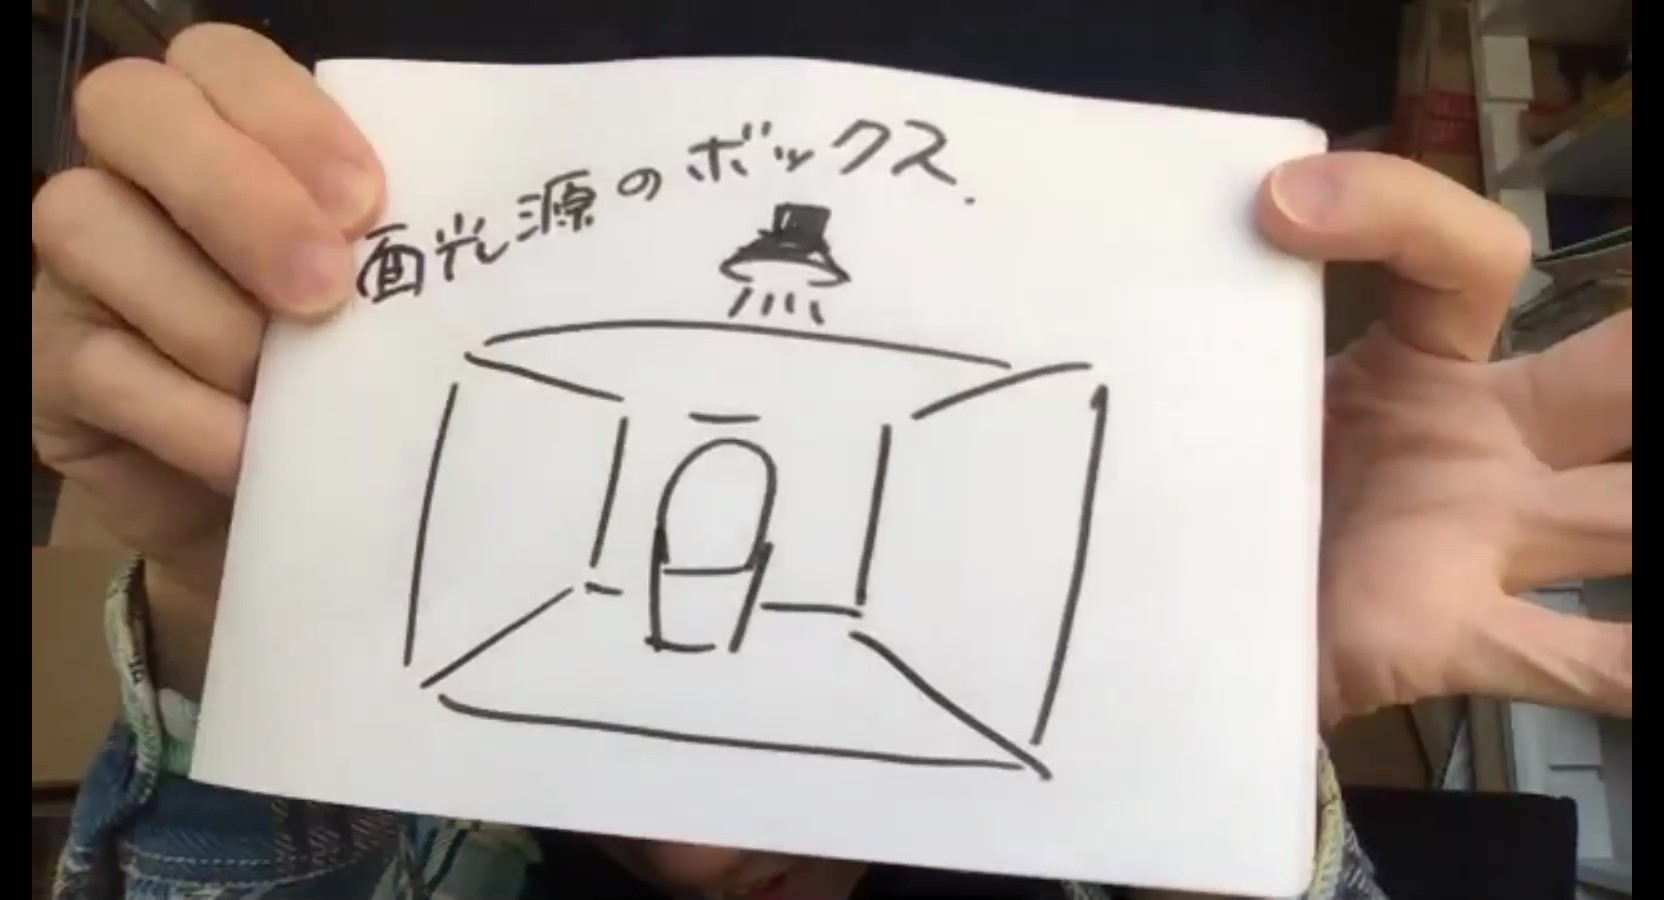 面光源のボックス.